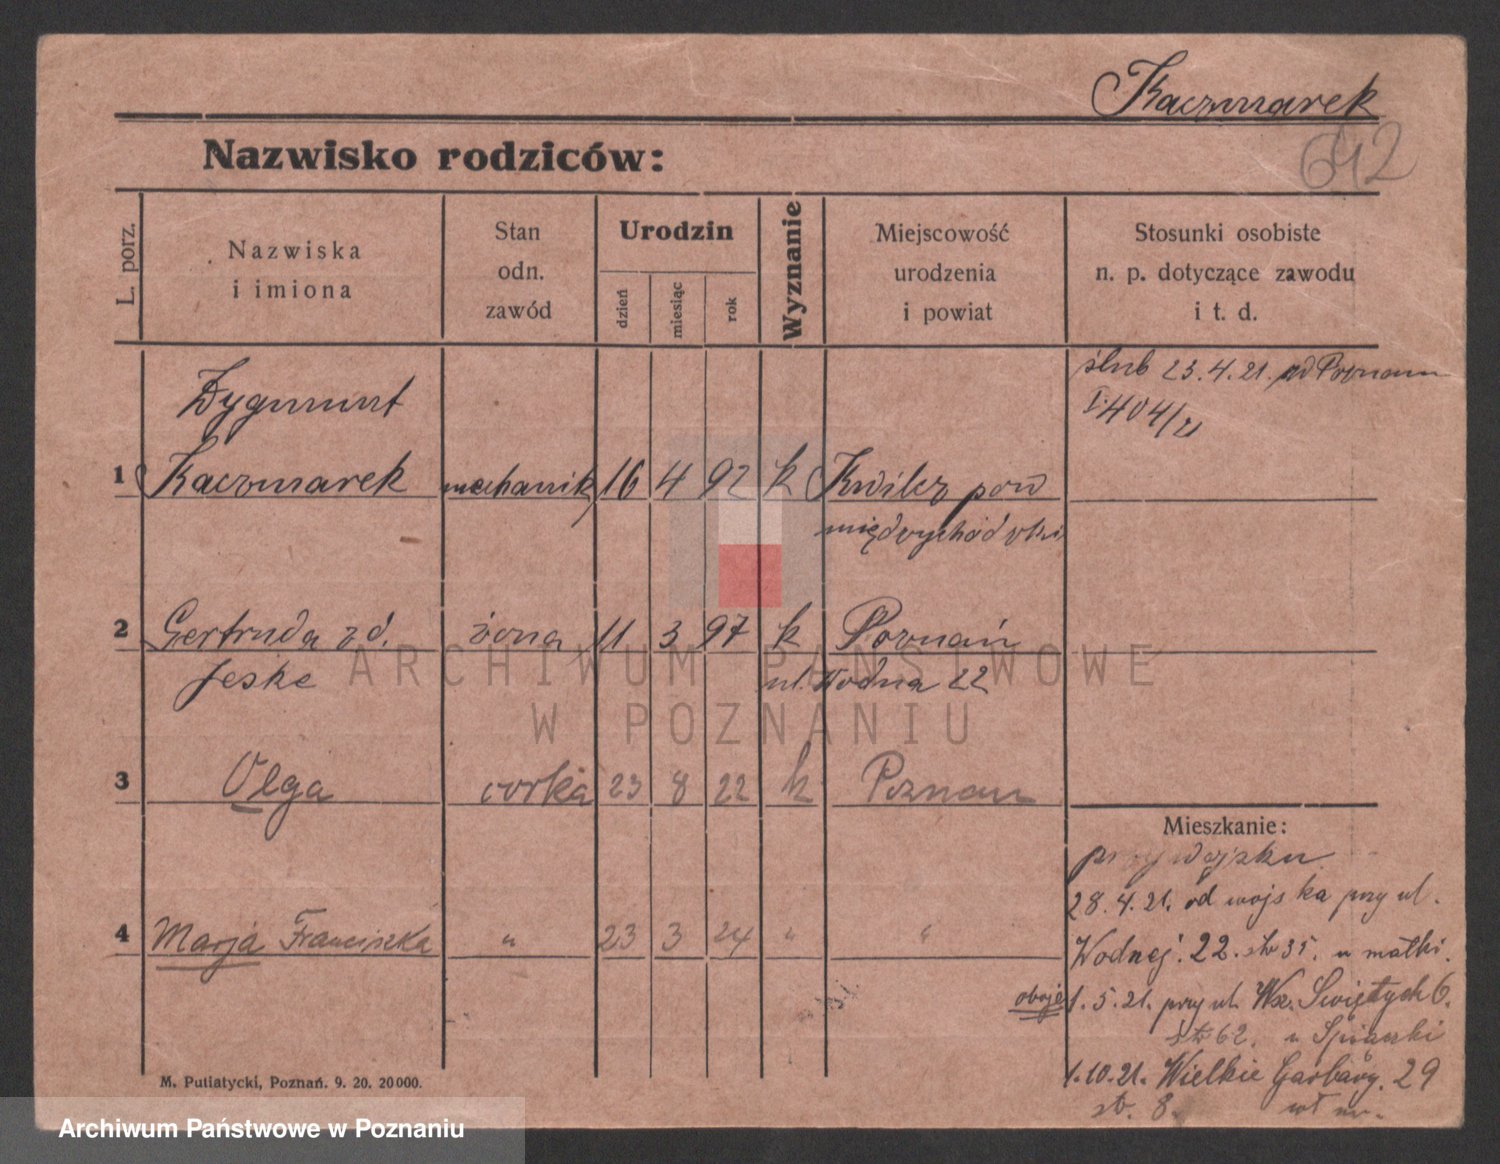 Kaczmarek
642
Nazwisko rodziców:
L. porz.
Nazwiska
i imiona
Stan
odn.
zawód
Urodzin
dzień
miesiąc
rok
Wyznanie
Miejscowość
urodzenia
i powiat
Stosunki osobiste
n. p. dotyczące zawodu
i t. d.
ślub 23.4.21. Poznam
404/21
Zygmunt
1 Kaczmarek mechanik 16 4 92 k Kwilcz pow
międzychódzki
2 Gertruda zd. żona 11 3 97 k Poznań
Jeske ul. Wodna 22
3 Olga corka 23 8 22 k Poznan
4 Marja Franciszka " 23 3 24 " "
Mieszkanie:
przy wojsku
28.4.21. od wojska przy ul.
Wodnej 22. u matki.
oboje 1.5.21. przy ul. Wsz. Świętych 6.
62. u
1.10.21. Wielkie Garbary. 29
8.
M. Putiatycki, Poznań. 9. 20. 20000.
ARCHIWUM PAŃSTWOWE
W POZNANIU
Archiwum Państwowe w Poznaniu